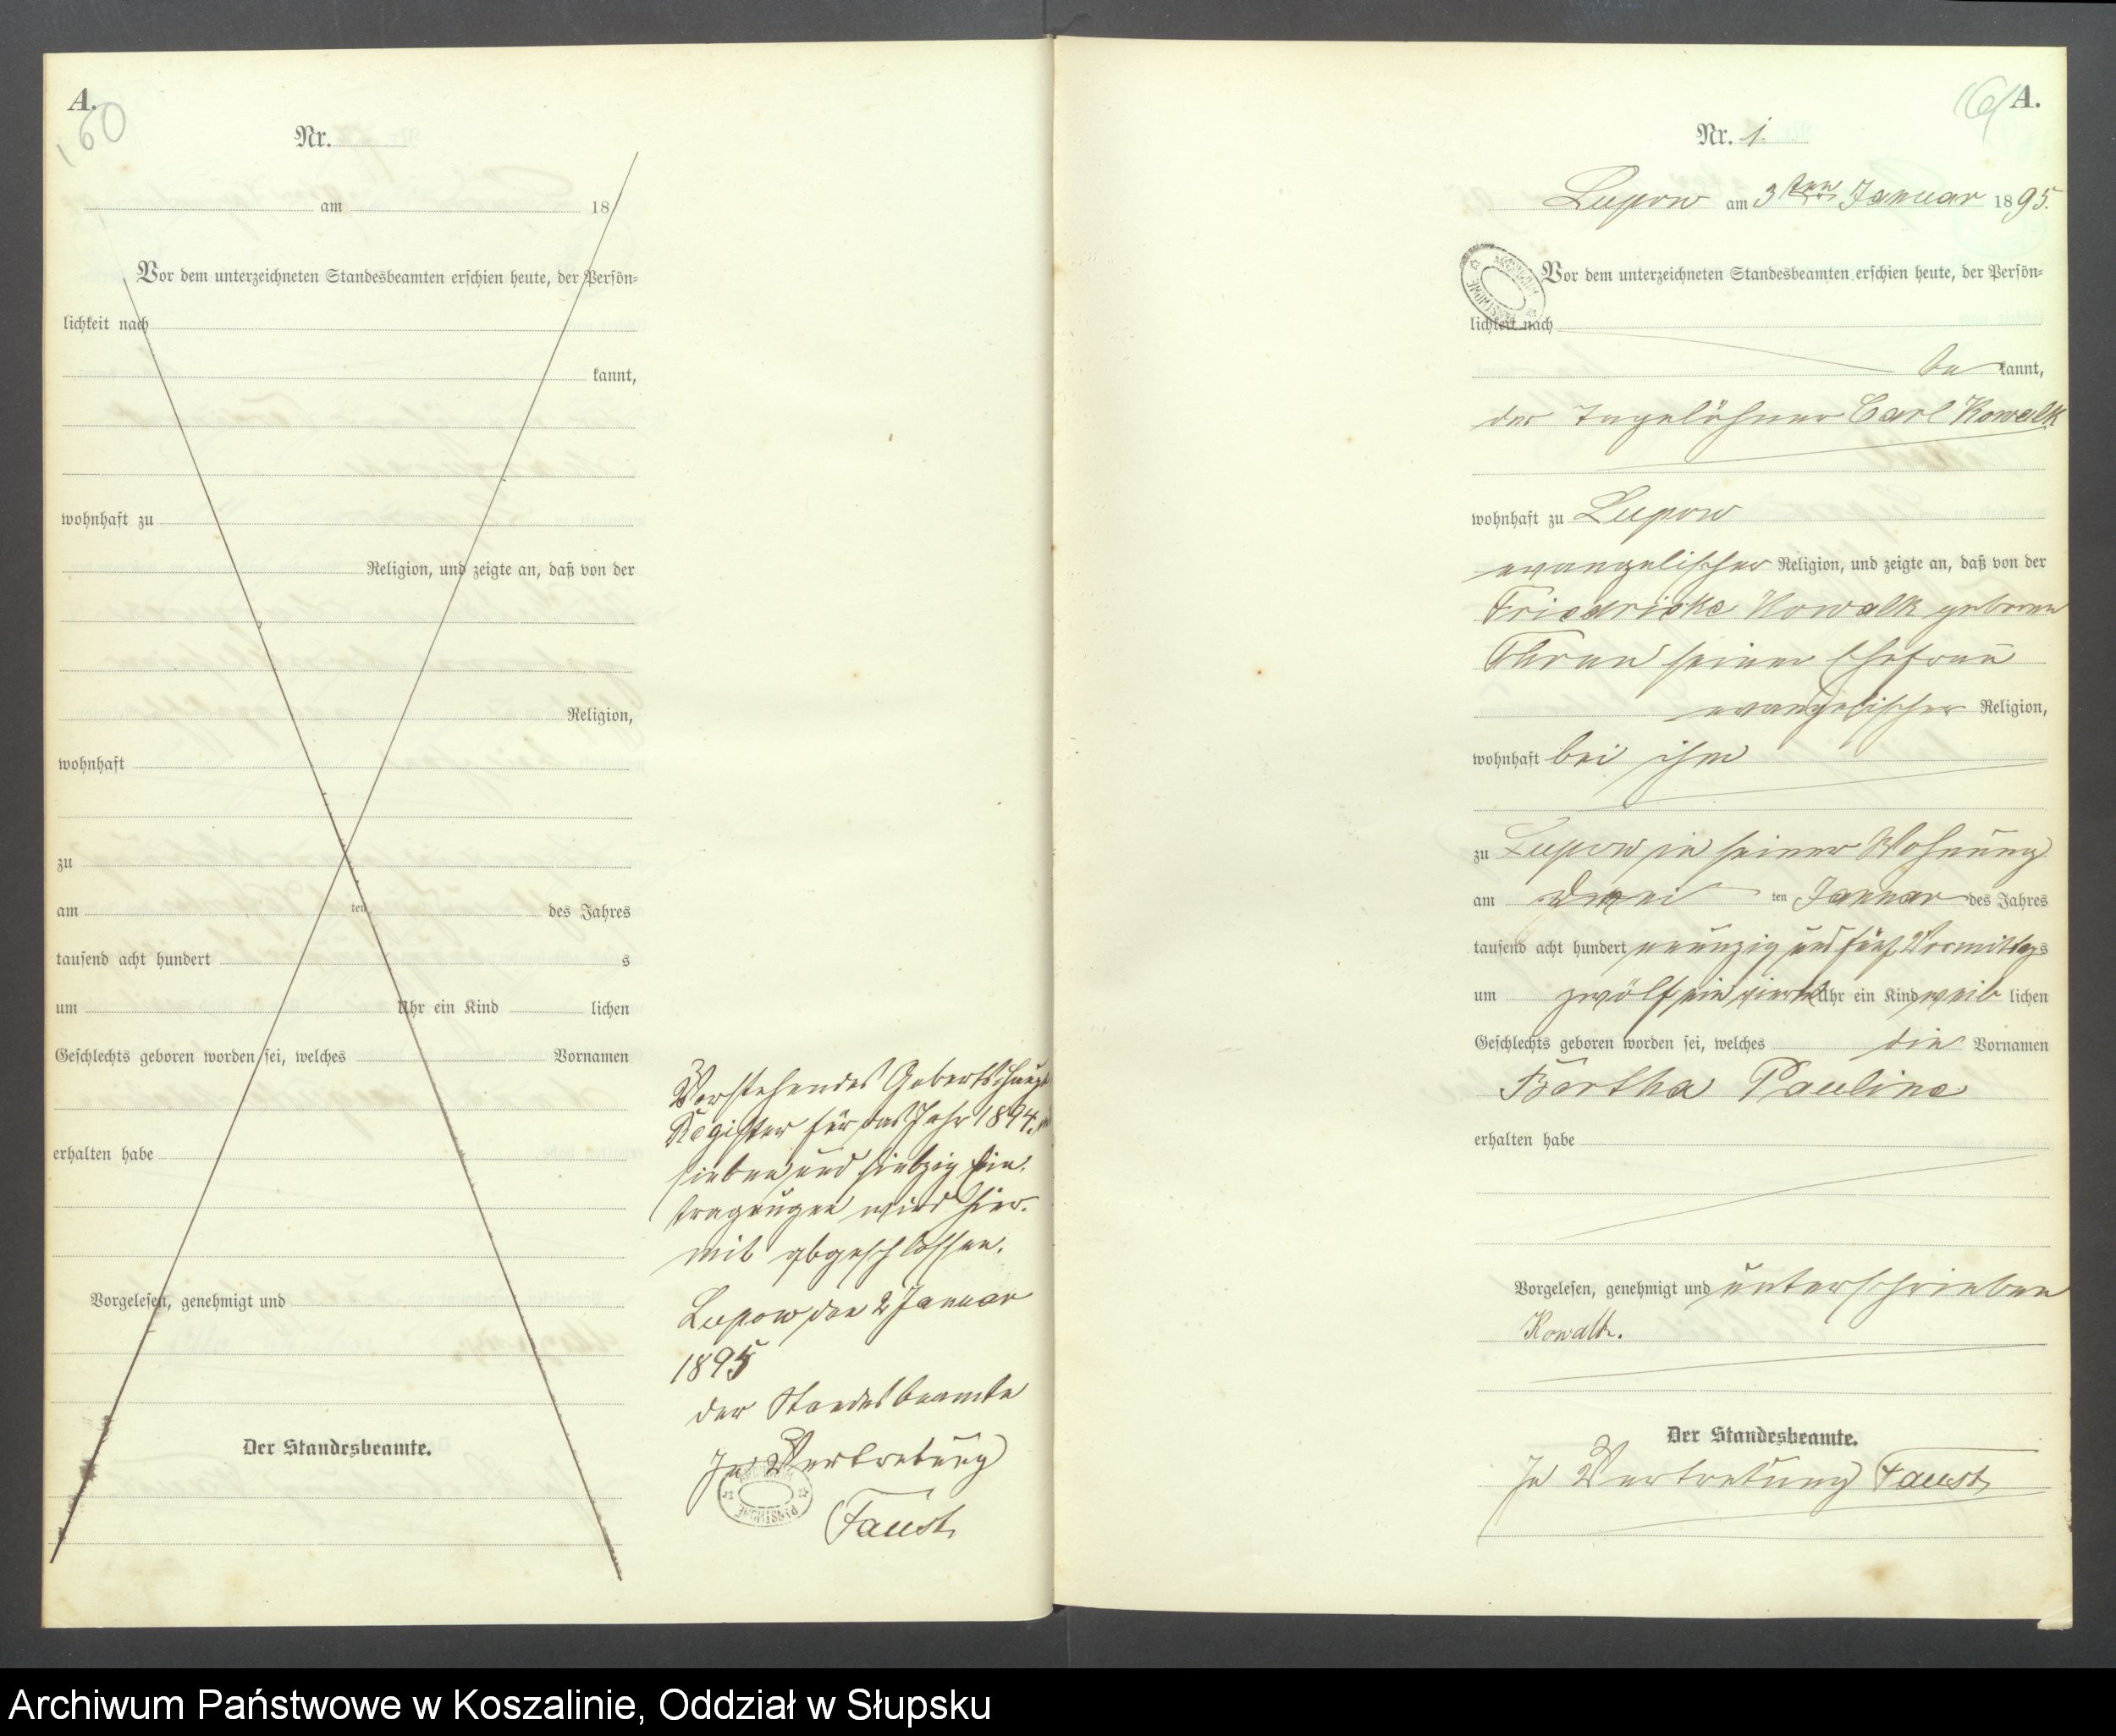 A.
160
Nr.
am 18
Vor dem unterzeichneten Standesbeamten erschien heute, der Persön=
lichkeit nach
kannt,
wohnhaft zu
Religion, und zeigte an, daß von der
Religion,
wohnhaft
zu
am ten des Jahres
tausend acht hundert s
um Uhr ein Kind lichen
Geschlechts geboren worden sei, welches Vornamen
erhalten habe
Vorgelesen, genehmigt und
Der Standesbeamte.
Vorstehendes Geburts Haupt
Register für das Jahr 1894
sieben und siebzig Ein-
tragungen wird hier-
mit abgeschlossen.
Lupow den 2 Januar
1895
der Standesbeamte
In Vertretung
Faust
A.
161
Nr. 1.
Lupow am 3ten Januar 1895.
Vor dem unterzeichneten Standesbeamten erschien heute, der Persön=
lichkeit nach
be kannt,
der Tagelöhner Carl Kowalk
wohnhaft zu Lupow
evangelischer Religion, und zeigte an, daß von der
Friedricke Kowalk geborene
Thrun seiner Ehefrau
evangelischer Religion,
wohnhaft bei ihm
zu Lupow in seiner Wohnung
am drei ten Januar des Jahres
tausend acht hundert neunzig und fünf Vormittags
um zwölf ein viertel Uhr ein Kind weib lichen
Geschlechts geboren worden sei, welches die Vornamen
Bertha Pauline
erhalten habe
Vorgelesen, genehmigt und unterschrieben
Kowalk.
Der Standesbeamte.
In Vertretung Faust
Archiwum Państwowe w Koszalinie, Oddział w Słupsku